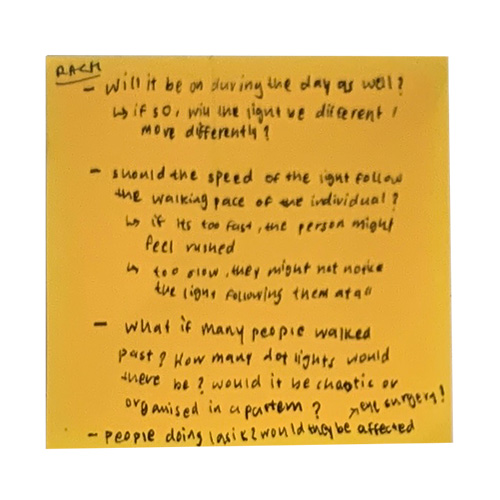 RACH
- will it be on during the day as well?
↳ if so, will the light be different /
move differently?
- should the speed of the light follow
the walking pace of the individual?
↳ if its too fast, the person might
feel rushed
↳ too slow, they might not notice
the light following them at all
- what if many people walked
past? How many dot lights would
there be? would it be chaotic or
organised in a pattern?
↗ eye surgery!
- people doing lasik? would they be affected